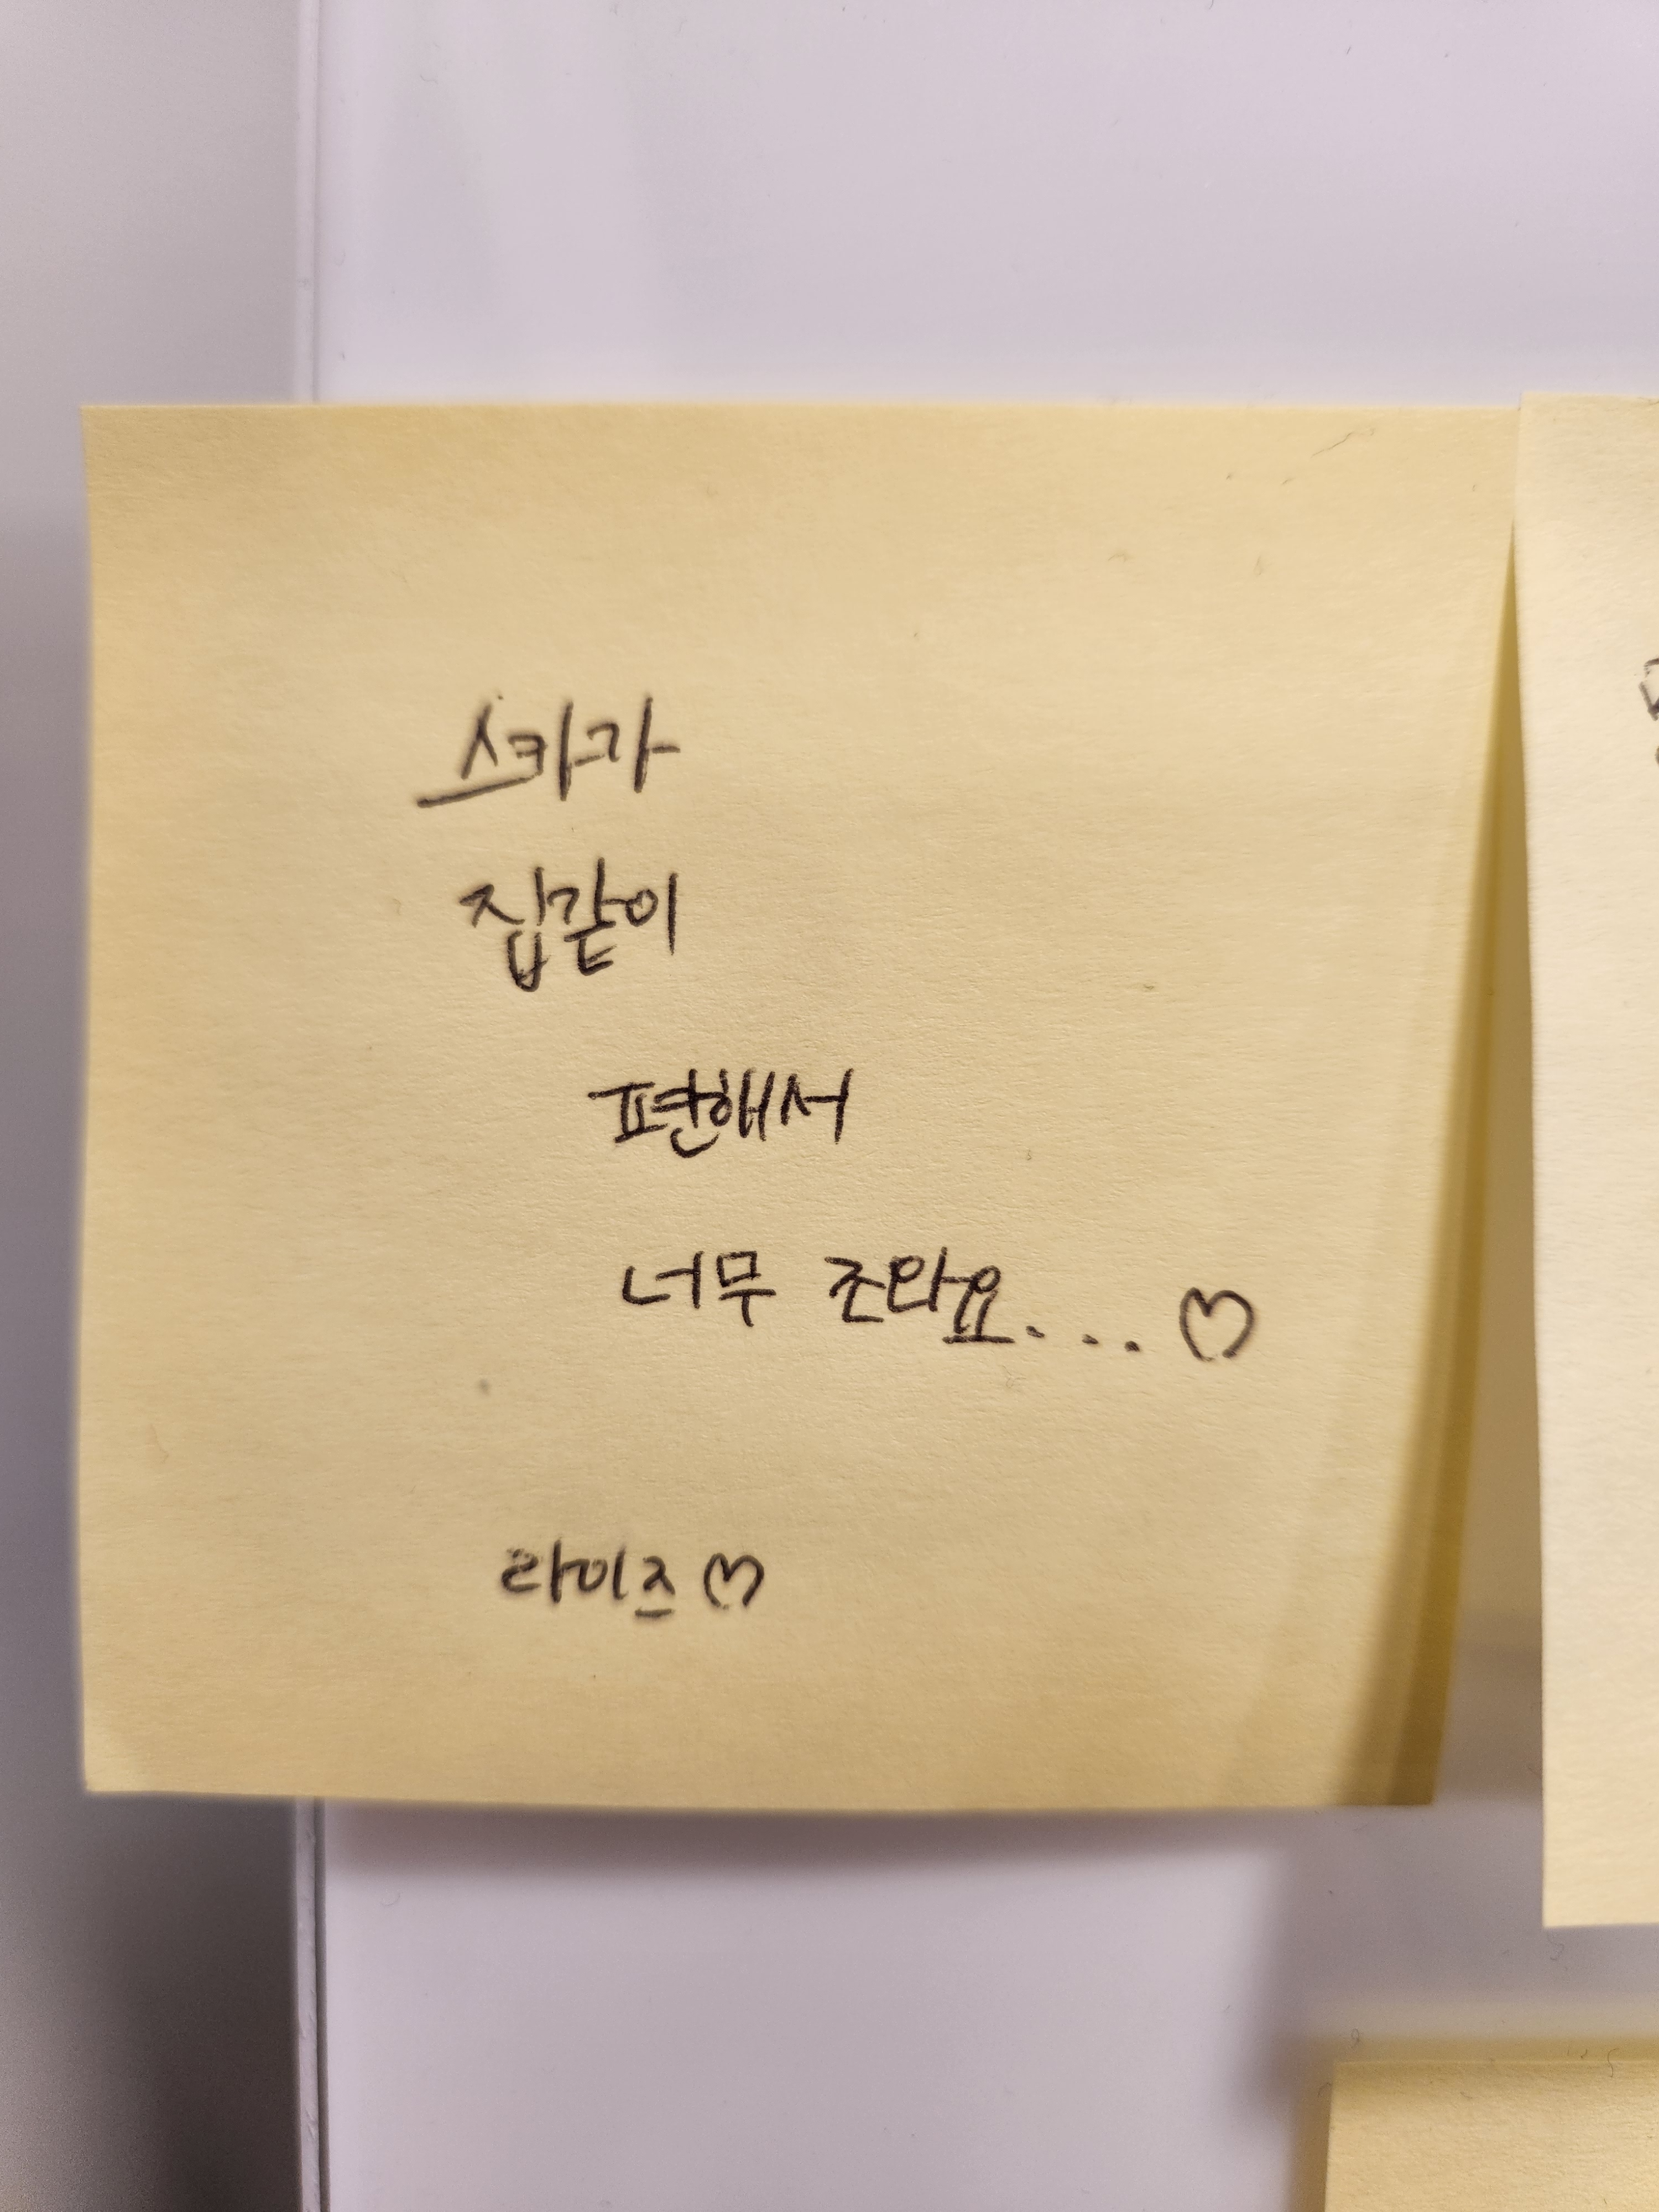 스카가
집같이
편해서
너무 조와요... ♡
라이즈 ♡